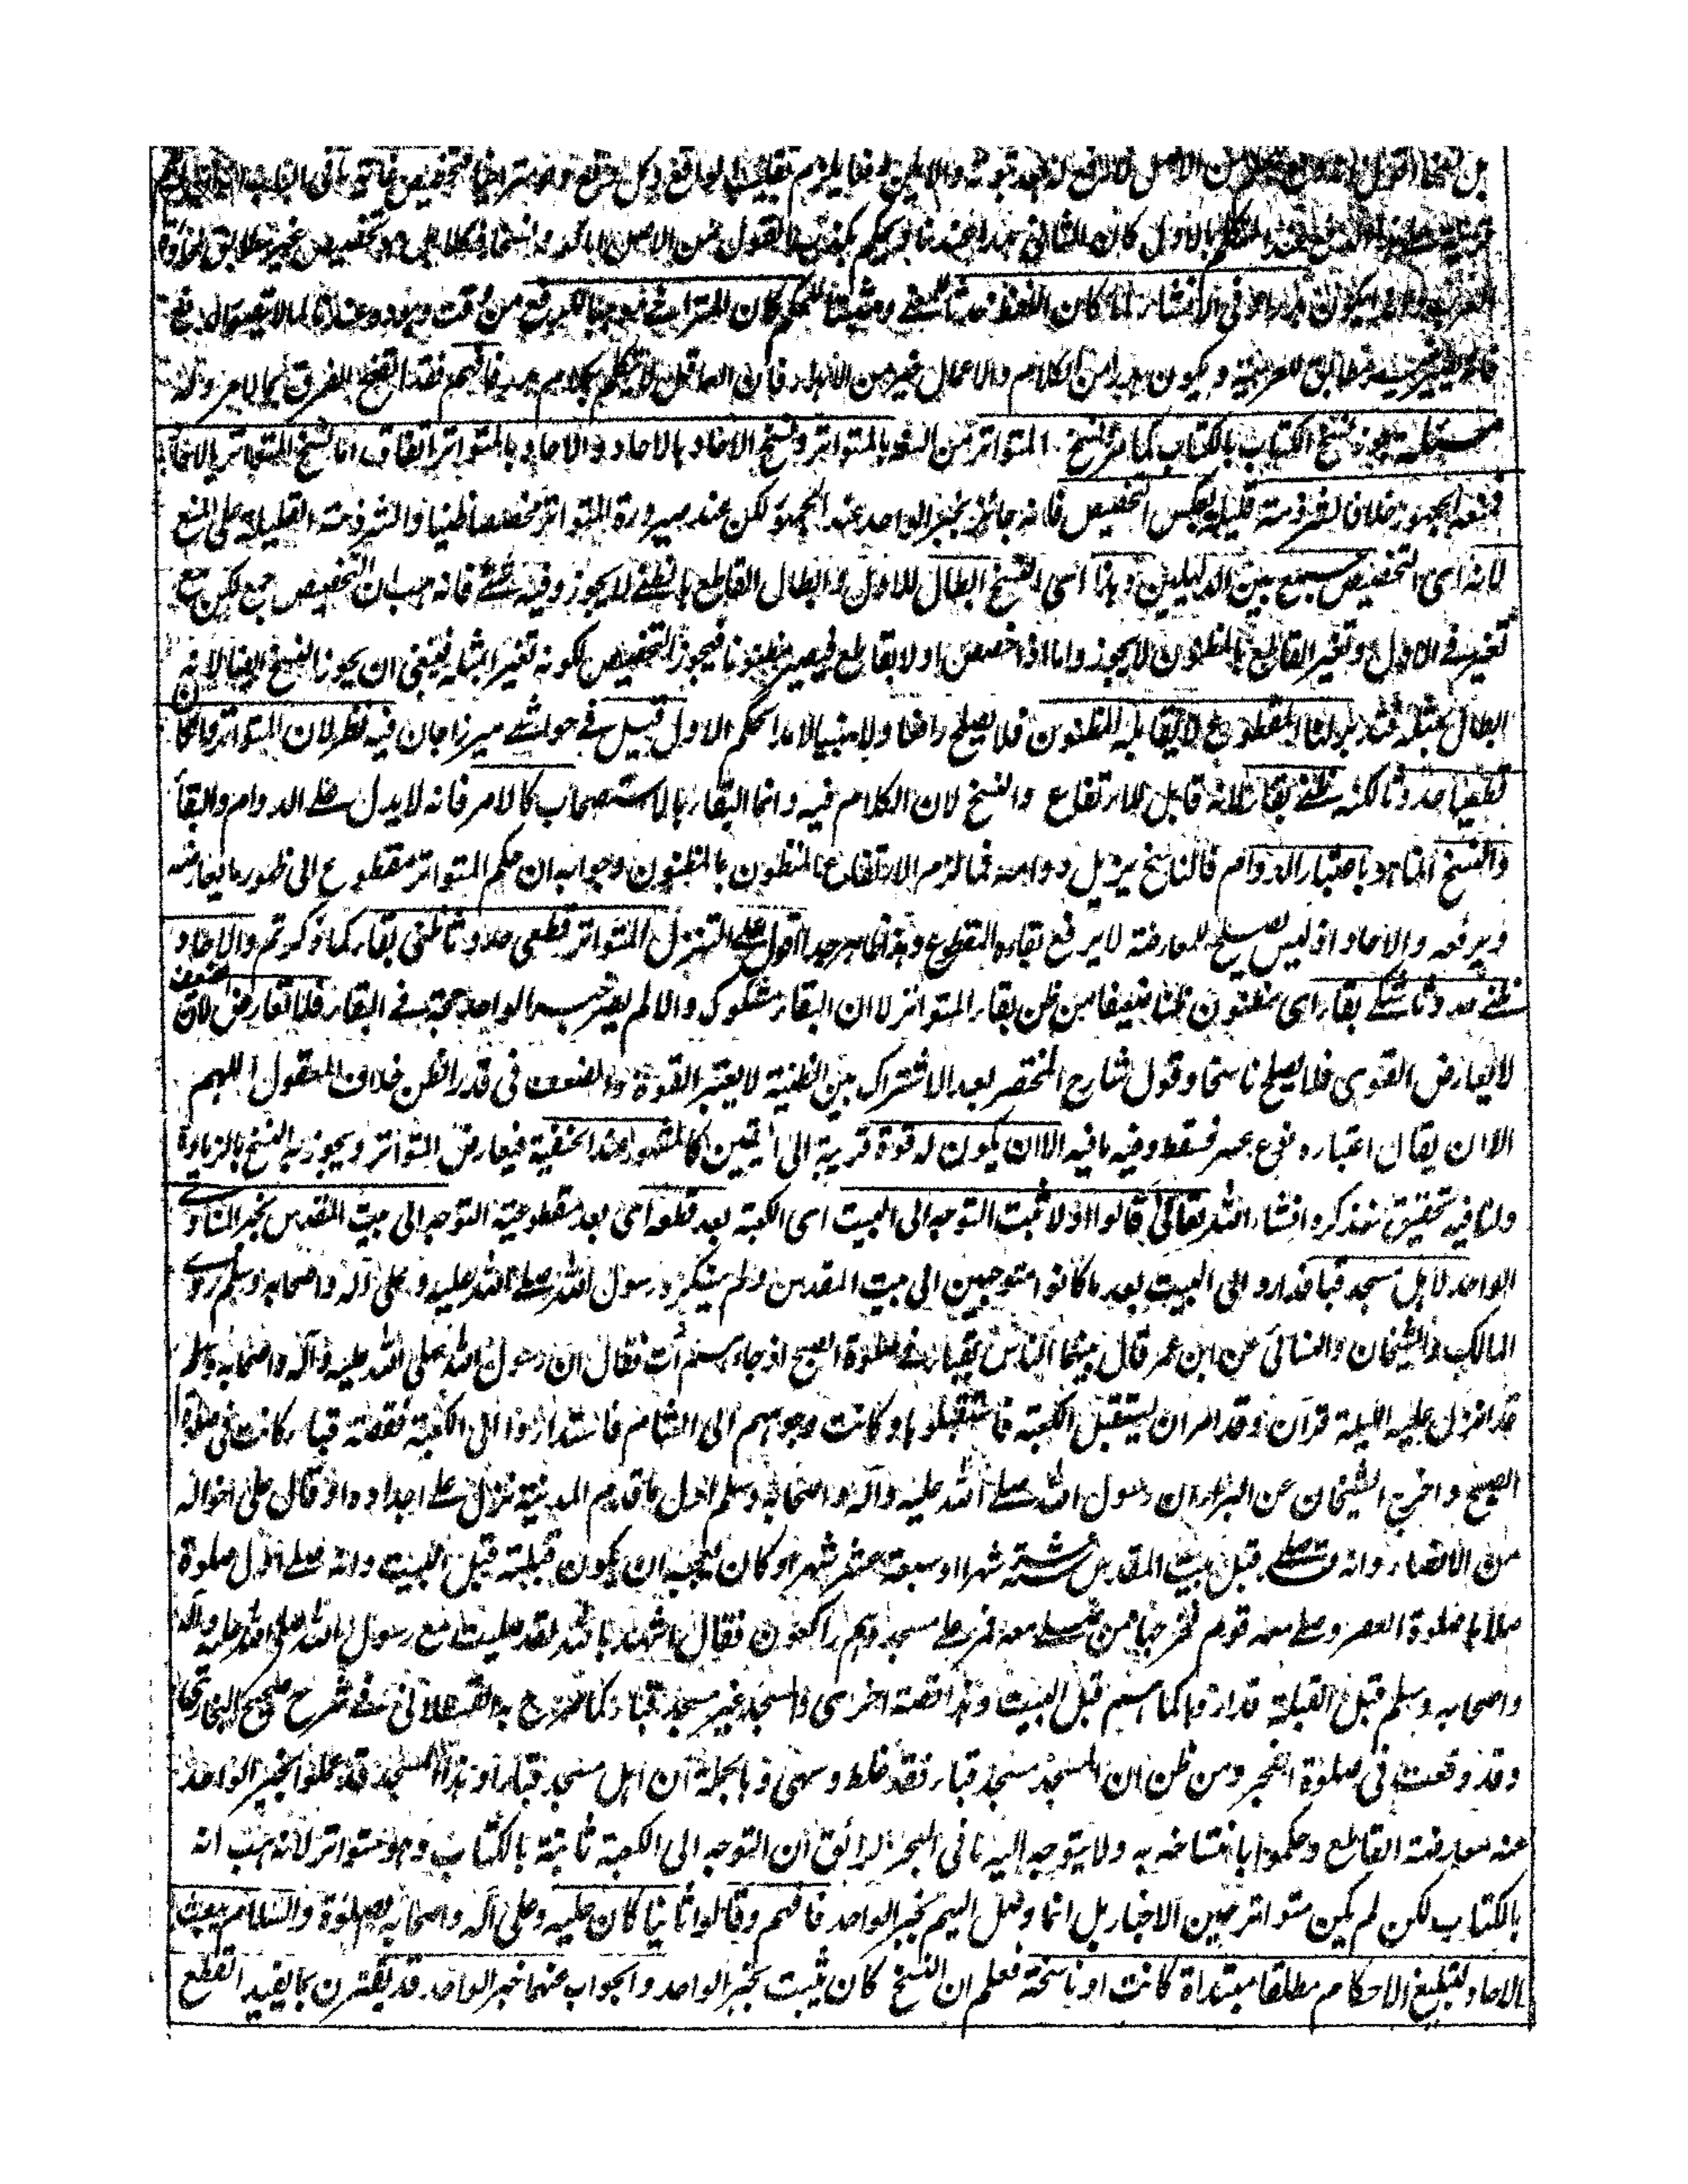 بالاول كان الثاني
وفي الانشاء لما كان اللفظ كان المتراخي من وقت وروده
مطابق ويكون من الكلام والاعمال خير من الاهدار فان العاقل لا يتكلم بكلام فافهم فقد اتضح الفرق
مسئلة يجوز نسخ الكتاب بالكتاب كما مر ونسخ المتواتر من السنة بالمتواتر ونسخ الاحاد بالاحاد والاحاد بالمتواتر اتفاقا اما نسخ المتواتر بالاحاد
فمنعه الجمهور خلافا لشرذمة قليلة بعكس التخصيص فانه جائز بخبر الواحد عند الجمهور لكن عند صيرورة المتواتر مخصصا ظنيا والشرذمة القليلة على المنع
لانه اى التخصيص جمع بين الدليلين وهذا اى النسخ ابطال للاول وابطال القاطع بالظني لا يجوز وفيه شئ فانه هب ان التخصيص جمع لكن مع
تغير في الاول وتغير القاطع بالمظنون لا يجوز واما اذا خصص اولا بقاطع فيصير مظنونا فيجوز التخصيص لكونه تغيرا بمثله فينبغي ان يجوز النسخ ايضا لانه
ابطال بمثله فتدبر لنا المقطوع لا يقابله المظنون فلا يصلح رافعا ولا مبينا لامد الحكم الاول قيل في حواشي ميرزا جان فيه نظر لان المتواتر وان كان
قطعيا حدوثا لكنه ظني بقاء لانه قابل للارتفاع والنسخ لان الكلام فيه وانما البقاء بالاستصحاب كالامر فانه لا يدل على الدوام والبقاء
والنسخ انما هو باعتبار الدوام فالناسخ يزيل دوامه فما لزم الا ارتفاع المظنون بالمظنون وجوابه ان حكم المتواتر مقطوع الى ظهور ما يعارضه
ويرفعه والاحاد اذ ليس يصلح للمعارضة لا يرفع بقاءه المقطوع وهو ظاهر جدا اقول على التنزل المتواتر قطعي حدوثا ظني بقاء كما ذكرتم والاحاد
ظني حدوثا شكي بقاء اى مظنون ظنا ضعيفا من ظن بقاء المتواتر لا ان البقاء مشكوك والا لم يصر خبر الواحد حجة في البقاء فلا تعارض لان الضعيف
لا يعارض القوى فلا يصلح ناسخا وقول شارح المختصر بعد الاشتراك بين الظنية لا يعتبر القوة والضعف في قدر الظن خلاف المعقول اللهم
الا ان يقال اعتباره نوع عسر فسقط وفيه ما فيه الا ان يكون له قوة قريبة الى اليقين كالمشهور عند الحنفية فيعارض المتواتر ويجوز به النسخ بالزيادة
ولنا فيه تحقيق سنذكره انشاء الله تعالى قالوا اولا ثبت التوجه الى البيت اى الكعبة بعد قطعه اى بعد مقطوعية التوجه الى بيت المقدس بخبر المنادى
الواحد لاهل مسجد قبا فداروا الى البيت بعد ما كانوا متوجهين الى بيت المقدس ولم ينكره رسول الله صلى الله عليه وعلى آله واصحابه وسلم روى
المالك والشيخان والنسائي عن ابن عمر قال بينما الناس بقباء في صلوة الصبح اذ جاءهم آت فقال ان رسول الله صلى الله عليه وآله واصحابه وسلم
قد انزل عليه الليلة قرآن وقد امر ان يستقبل الكعبة فاستقبلوها وكانت وجوههم الى الشام فاستداروا الى الكعبة فقصة قباء كانت في صلوة
الصبح واخرج الشيخان عن البراء ان رسول الله صلى الله عليه وآله واصحابه وسلم اول ما قدم المدينة نزل على اجداده او قال على اخواله
من الانصار وانه صلى قبل بيت المقدس ستة عشر شهرا او سبعة عشر شهرا وكان يعجبه ان يكون قبلته قبل البيت وانه صلى اول صلوة
صلاها صلوة العصر وصلى معه قوم فخرج ممن صلى معه فمر على مسجد وهم راكعون فقال اشهد بالله لقد صليت مع رسول الله صلى الله عليه وآله
واصحابه وسلم قبل القبلة فداروا كما هم قبل البيت وهذا قصة اخرى والمسجد غير مسجد قباء كما صرح به القسطلاني في شرح صحيح البخاري
وقد وقعت في صلوة الفجر ومن ظن ان المسجد مسجد قباء فقد غلط وسهى وبالجملة ان اهل مسجد قباء او هذا المسجد قد عملوا بخبر الواحد
عند معارضة القاطع وحكموا بانتساخه به ولا يتوجه اليه ما في البحر الرائق ان التوجه الى الكعبة ثابتة بالكتاب وهو متواتر لانه هب انه
بالكتاب لكن لم يكن متواترا حين الاخبار بل انما وصل اليهم بخبر الواحد فافهم وقالوا ثانيا كان عليه وعلى آله واصحابه الصلوة والسلام يبعث
الاحاد لتبليغ الاحكام مطلقا مبتداة كانت او ناسخة فعلم ان النسخ كان يثبت بخبر الواحد والجواب عنهما خبر الواحد قد يقترن بما يفيد القطع